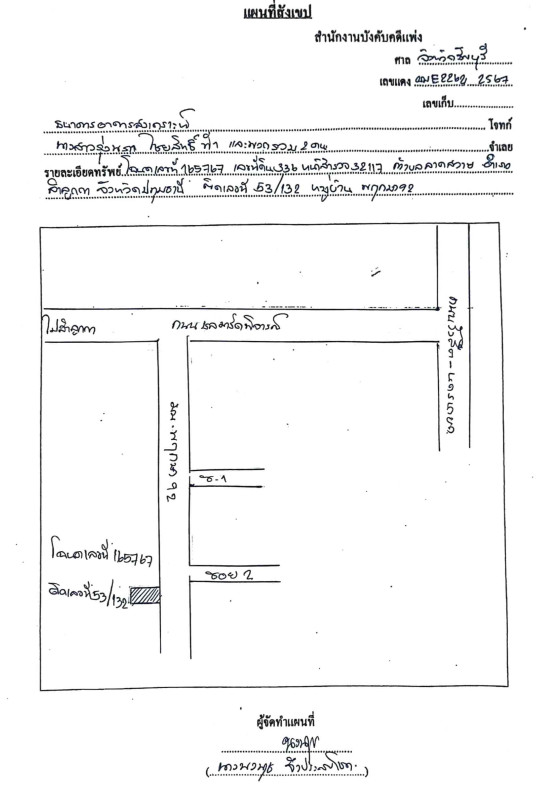 แผนที่สังเขป
สำนักงานบังคับคดีแพ่ง
ศาล จังหวัดธัญบุรี
เลขแดง ผบE2262/2567
เลขเก็บ
ธนาคารอาคารสงเคราะห์ โจทก์
ที่1 และพวกรวม 2 คน จำเลย
รายละเอียดทรัพย์ โฉนดเลขที่ 165767 เลขที่ดิน 336 หน้าสำรวจ 32117 ตำบลลาดสวาย อำเภอ
ลำลูกกา จังหวัดปทุมธานี ติดเลขที่ 53/132 หมู่บ้าน พฤกษา92
ไปลำลูกกา
ถนน
ถนนรังสิต-นครนายก
พฤกษา 92
ซ.1
โฉนดเลขที่ 165767
ซอย 2
ติดเลขที่ 53/132
ผู้จัดทำแผนที่